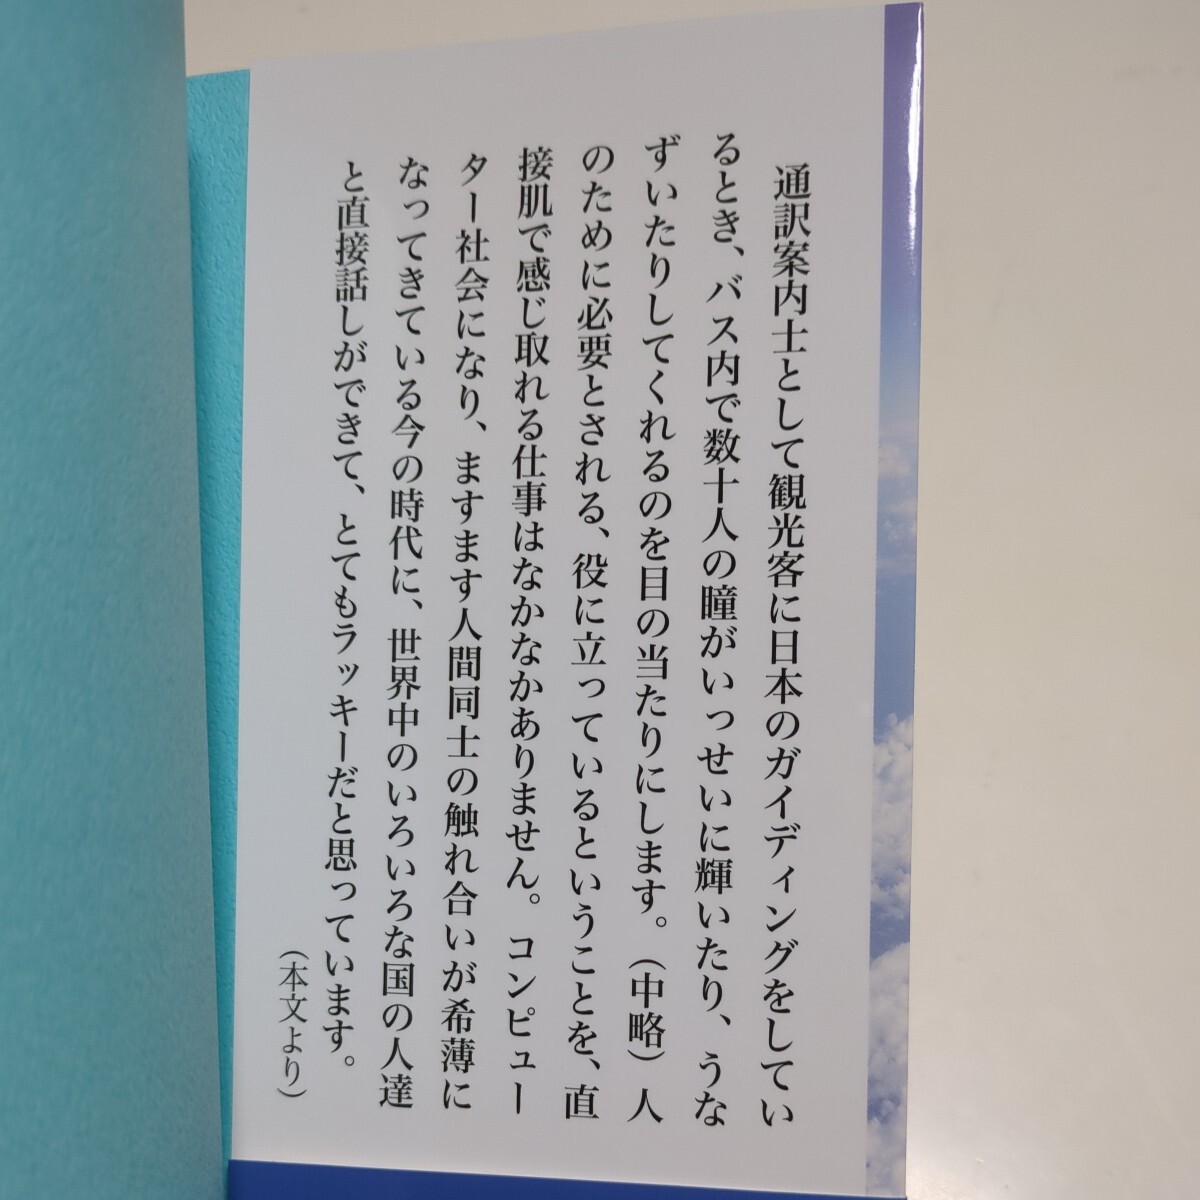 通訳案内士として観光客に日本のガイディングをしてい
るとき、バス内で数十人の瞳がいっせいに輝いたり、うな
ずいたりしてくれるのを目の当たりにします。（中略）人
のために必要とされる、役に立っているということを、直
接肌で感じ取れる仕事はなかなかありません。コンピュー
ター社会になり、ますます人間同士の触れ合いが希薄に
なってきている今の時代に、世界中のいろいろな国の人達
と直接話しができて、とてもラッキーだと思っています。
（本文より）